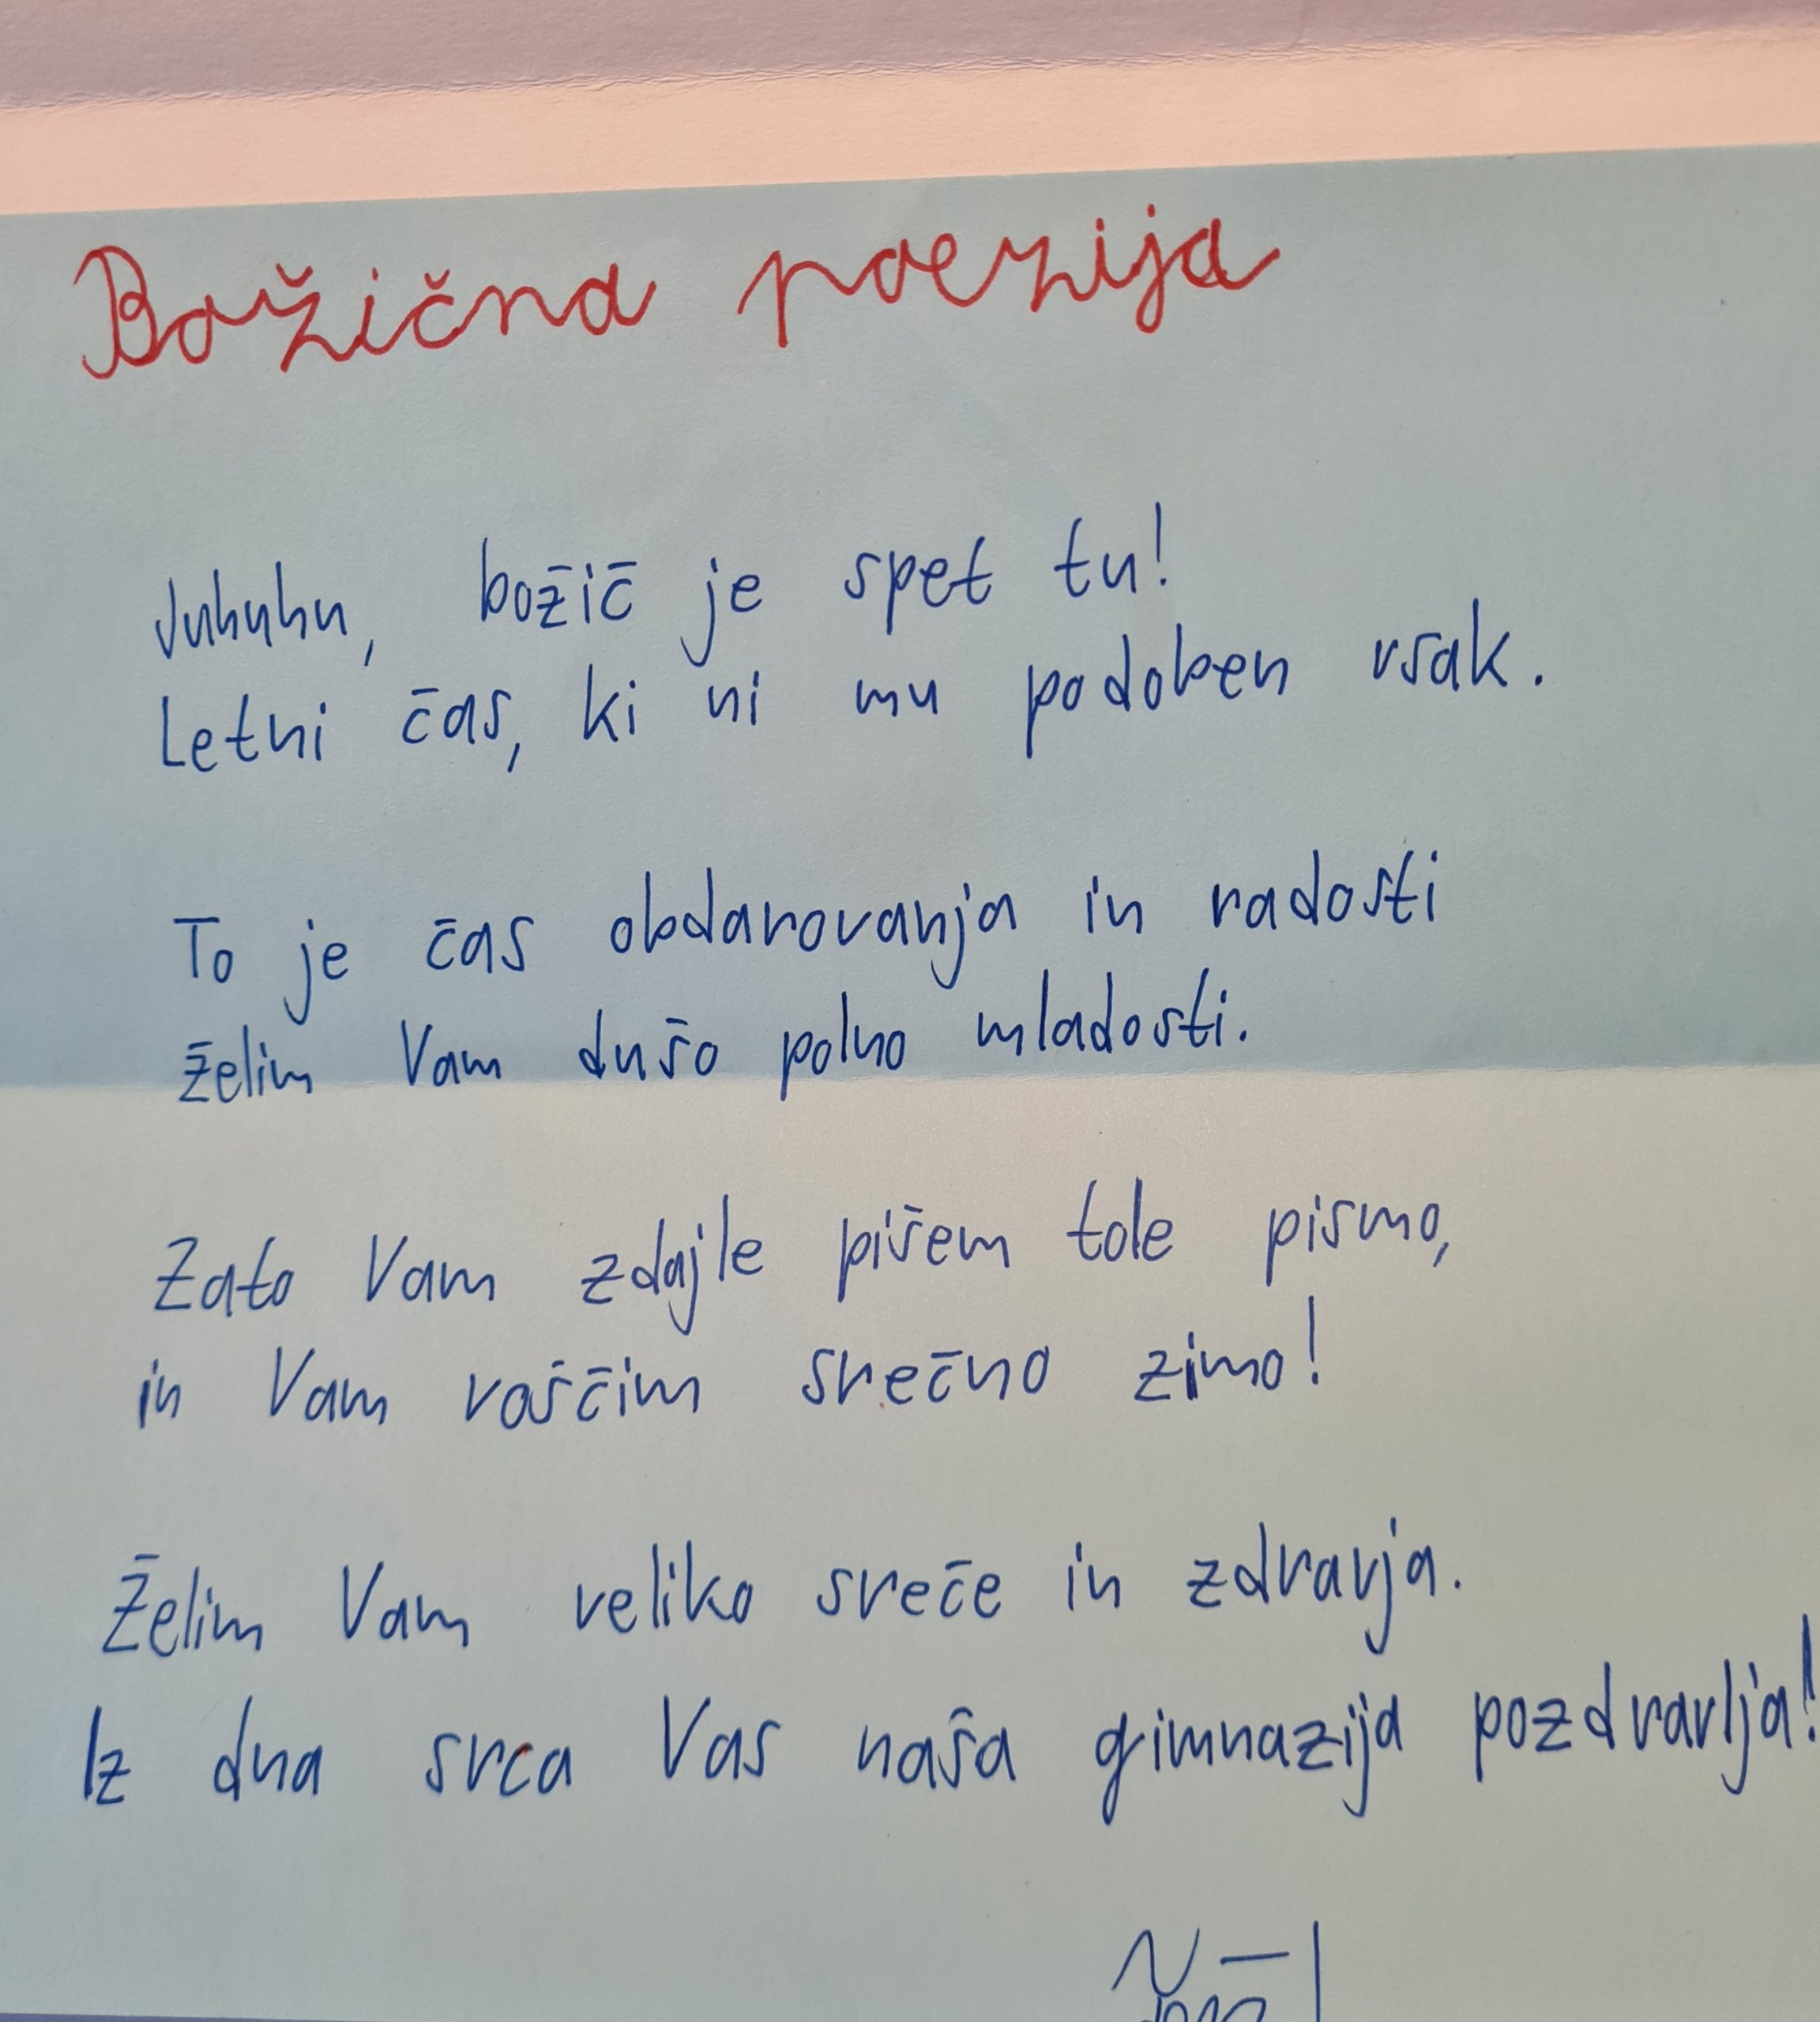 Božična poezija
Juhuhu, božič je spet tu!
Letni čas, ki ni mu podoben vsak.
To je čas obdarovanja in radosti
želim Vam dušo polno mladosti.
Zato Vam zdajle pišem tole pismo,
in Vam voščim srečno zimo!
Želim Vam veliko sreče in zdravja.
Iz dna srca Vas naša gimnazija pozdravlja!